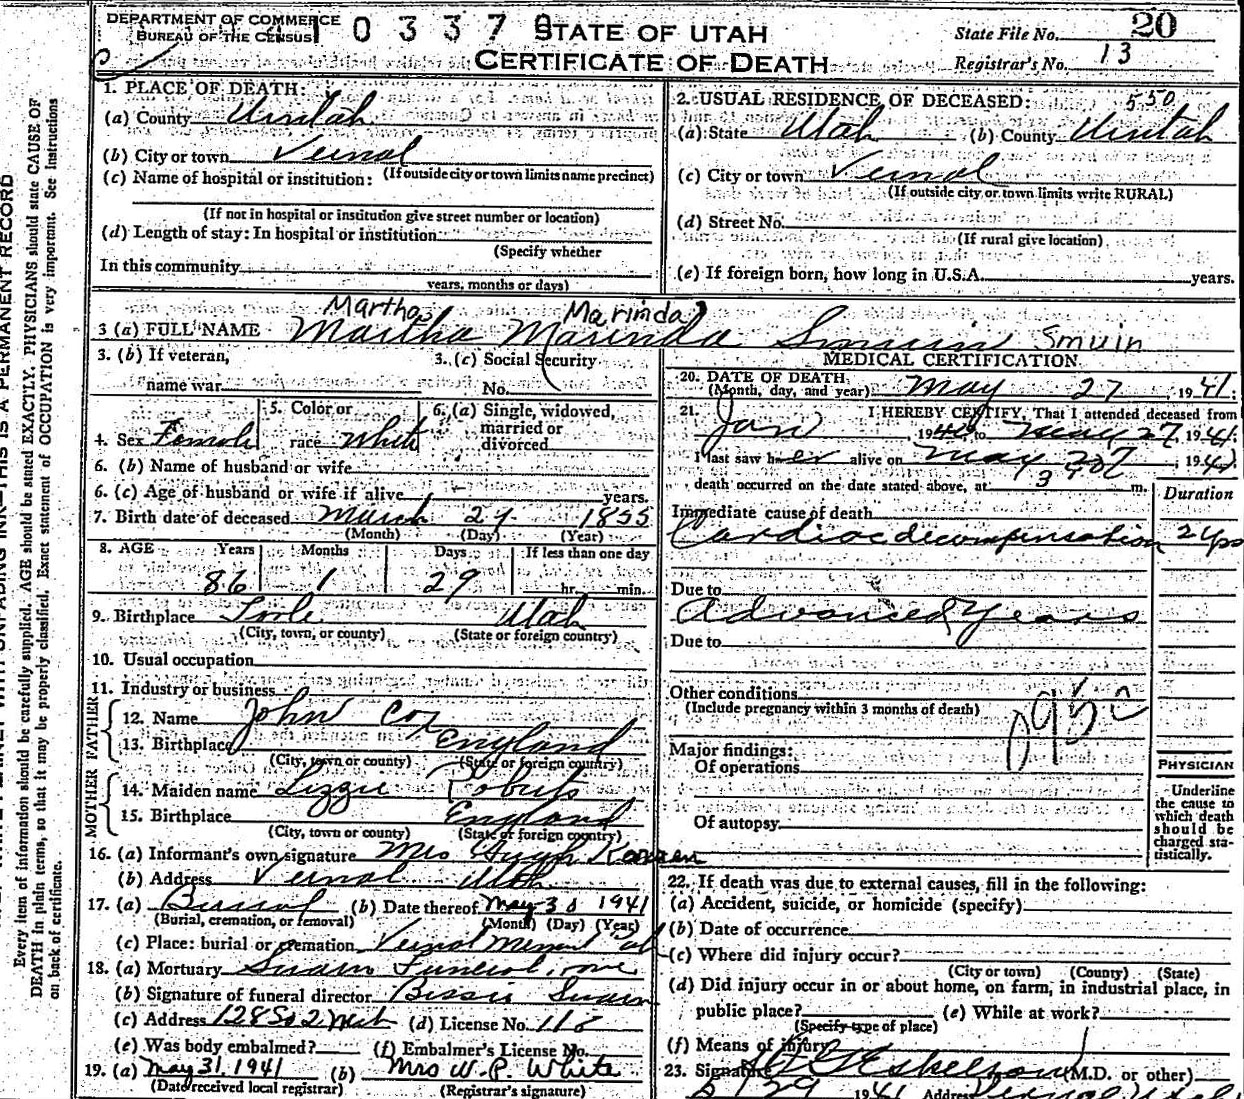 DEPARTMENT OF COMMERCE
BUREAU OF THE CENSUS
0 3 3 7 9
STATE OF UTAH
CERTIFICATE OF DEATH
State File No. 20
Registrar's No. 13
1. PLACE OF DEATH:
(a) County Uintah
(b) City or town Vernal
(If outside city or town limits name precinct)
(c) Name of hospital or institution:
(If not in hospital or institution give street number or location)
(d) Length of stay: In hospital or institution
(Specify whether
In this community
years, months or days)
2. USUAL RESIDENCE OF DECEASED: 550
(a) State Utah (b) County Uintah
(c) City or town Vernal
(If outside city or town limits write RURAL)
(d) Street No.
(If rural give location)
(e) If foreign born, how long in U.S.A. years.
Martha Marinda
3 (a) FULL NAME Martha Marinda Smuin Smuin
3. (b) If veteran,
name war
3. (c) Social Security
No.
4. Sex Female
5. Color or
race White
6. (a) Single, widowed,
married or
divorced
6. (b) Name of husband or wife
6. (c) Age of husband or wife if alive years.
7. Birth date of deceased March 27 1855
(Month) (Day) (Year)
8. AGE Years Months Days If less than one day
86 1 29 hr. min.
9. Birthplace Toole Utah
(City, town, or county) (State or foreign country)
10. Usual occupation
11. Industry or business
FATHER
12. Name John Cox
13. Birthplace England
(City, town or county) (State or foreign country)
MOTHER
14. Maiden name Lizzie Roberts
15. Birthplace England
(City, town or county) (State or foreign country)
16. (a) Informant's own signature Mrs Hugh
(b) Address Vernal Utah
17. (a) Burial (b) Date thereof May 30 1941
(Burial, cremation, or removal) (Month) (Day) (Year)
(c) Place: burial or cremation Vernal
18. (a) Mortuary Swain Funeral
(b) Signature of funeral director Bessie Swain
(c) Address 128 So 2 West (d) License No. 118
(e) Was body embalmed? (f) Embalmer's License No.
19. (a) May 31, 1941 (b) Mrs W. P. White
(Date received local registrar) (Registrar's signature)
MEDICAL CERTIFICATION
20. DATE OF DEATH
(Month, day, and year) May 27, 1941.
21. I HEREBY CERTIFY, That I attended deceased from
Jan, 1940, to May 27, 1941.
I last saw her alive on May 27, 194
death occurred on the date stated above, at 3 m.
Duration
Immediate cause of death
Cardiac decompensation 2 yrs
Due to
Advanced Years
Due to
Other conditions
(Include pregnancy within 3 months of death)
095
Major findings:
Of operations
Of autopsy
PHYSICIAN
Underline
the cause to
which death
should be
charged sta-
tistically.
22. If death was due to external causes, fill in the following:
(a) Accident, suicide, or homicide (specify)
(b) Date of occurrence
(c) Where did injury occur?
(City or town) (County) (State)
(d) Did injury occur in or about home, on farm, in industrial place, in
public place? (e) While at work?
(Specify type of place)
(f) Means of injury
23. Signature Eskelson (M.D. or other)
5/29 1941 Address Vernal Utah
Every item of information should be carefully supplied. AGE should be stated EXACTLY. PHYSICIANS should state CAUSE OF
DEATH in plain terms, so that it may be properly classified. Exact statement of OCCUPATION is very important. See Instructions
on back of certificate.
THIS IS A PERMANENT RECORD